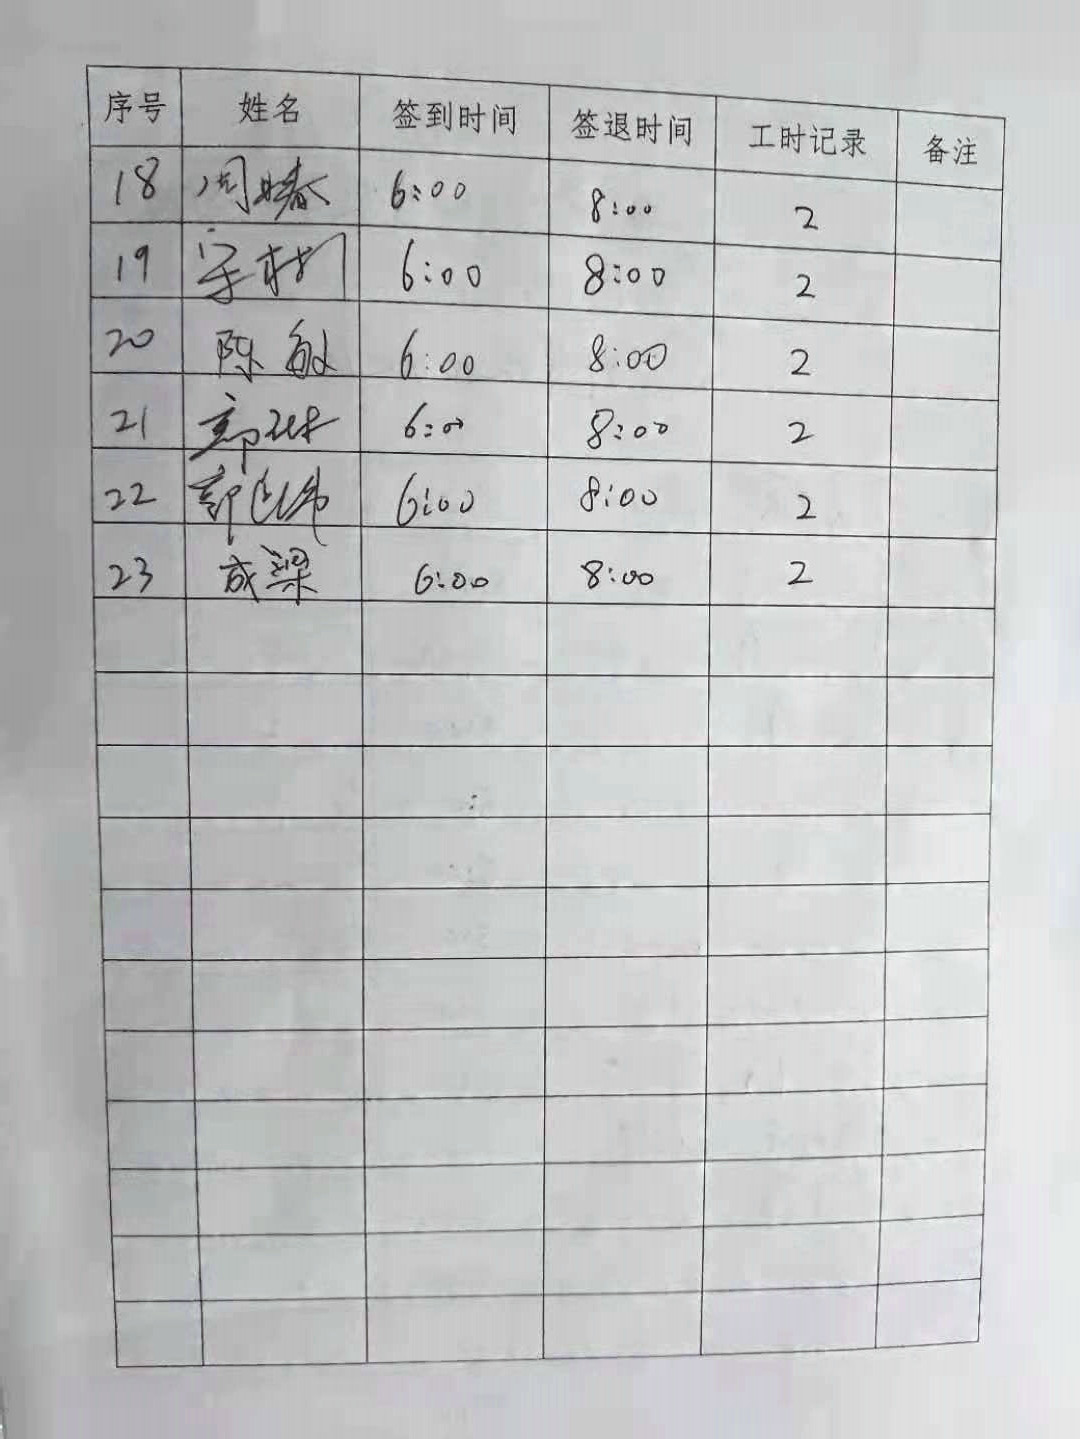 序号 姓名 签到时间 签退时间 工时记录 备注
18 周春 6:00 8:00 2
19 6:00 8:00 2
20 陈敏 6:00 8:00 2
21 6:00 8:00 2
22 6:00 8:00 2
23 成梁 6:00 8:00 2